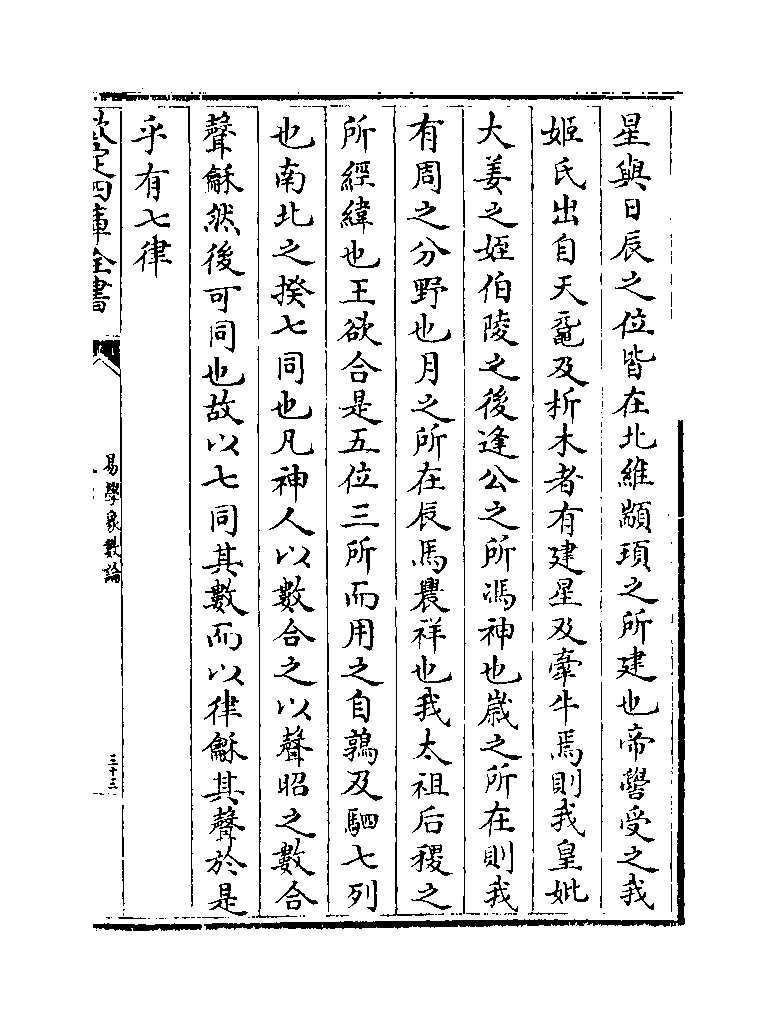 星與日辰之位皆在北維顓頊之所建也帝嚳受之我
姬氏出自天黿及析木者有建星及牽牛焉則我皇妣
大姜之姪伯陵之後逄公之所馮神也嵗之所在則我
有周之分野也月之所在辰馬農祥也我太祖后稷之
所經緯也王欲合是五位三所而用之自鶉及駟七列
也南北之揆七同也凡神人以數合之以聲昭之數合
聲龢然後可同也故以七同其數而以律龢其聲於是
乎有七律
欽定四庫全書
易學象數論
三十三